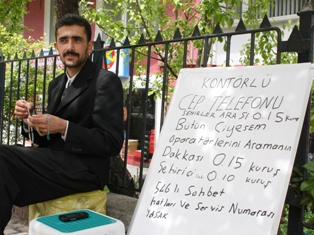 KONTÖRLÜ
CEP TELEFONU
ŞEHİRLER ARASI 0.15 Kuruş
Bütün
Operatörlerini Aramanın
Dakkası 0 15 kuruş
Şehiriçi 0.10 kuruş
Sohbet
hatları Ve Servis Numaraları
YASAK